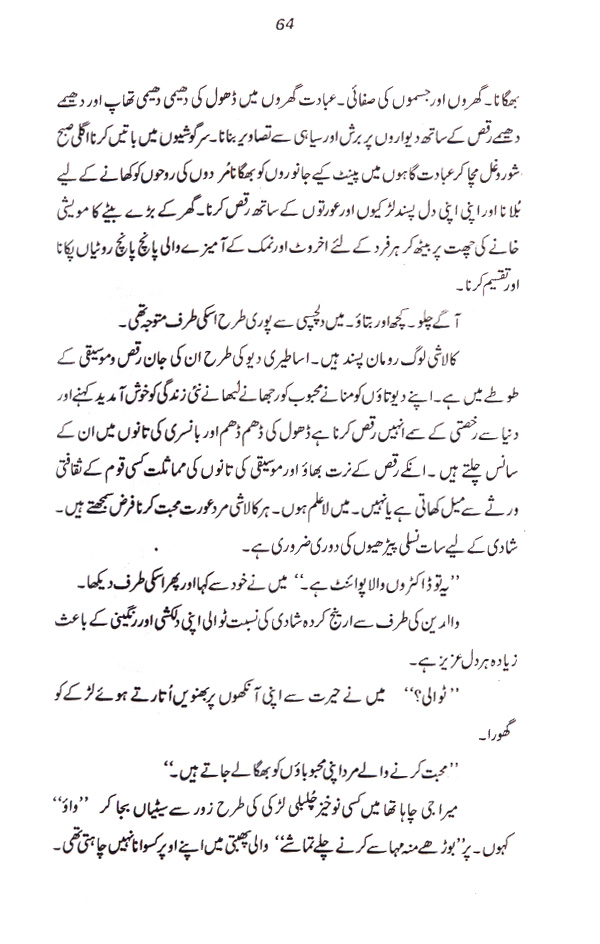 64
بھگانا۔ گھروں اور جسموں کی صفائی۔ عبادت گھروں میں ڈھول کی دھیمی دھیمی تھاپ اور دھیمے
دھیمے رقص کے ساتھ دیواروں پر برش اور سیاہی سے تصاویر بنانا۔ سرگوشیوں میں باتیں کرنا اگلی صبح
شور وغل مچا کر عبادت گاہوں میں پینٹ کیے جانوروں کو بھگانا مُردوں کی روحوں کو کھانے کے لیے
بُلانا اور اپنی اپنی دل پسند لڑکیوں اور عورتوں کے ساتھ رقص کرنا۔ گھر کے بڑے بیٹے کا مویشی
خانے کی چھت پر بیٹھ کر ہر فرد کے لئے اخروٹ اور نمک کے آمیزے والی پانچ پانچ روٹیاں پکانا
اور تقسیم کرنا۔
آگے چلو۔ کچھ اور بتاؤ۔ میں دلچسپی سے پوری طرح اسکی طرف متوجہ تھی۔
کالاشی لوگ رومان پسند ہیں۔ اساطیری دیو کی طرح ان کی جان رقص و موسیقی کے
طوطے میں ہے۔ اپنے دیوتاؤں کو منانے محبوب کو رجھانے لُبھانے نئی زندگی کو خوش آمدید کہنے اور
دنیا سے رخصتی کے سمے انہیں رقص کرنا ہے ڈھول کی ڈھم ڈھم اور بانسری کی تانوں میں ان کے
سانس چلتے ہیں۔ انکے رقص کے نرت بھاؤ اور موسیقی کی تانوں کی مماثلت کسی قوم کے ثقافتی
ورثے سے میل کھاتی ہے یا نہیں۔ میں لاعلم ہوں۔ ہر کالاشی مرد عورت محبت کرنا فرض سمجھتے ہیں۔
شادی کے لیے سات نسلی پیڑھیوں کی دوری ضروری ہے۔
”یہ تو ڈاکٹروں والا پوائنٹ ہے۔“ میں نے خود سے کہا اور پھر اسکی طرف دیکھا۔
والدین کی طرف سے ارینج کردہ شادی کی نسبت ٹوالی اپنی دلکشی اور رنگینی کے باعث
زیادہ ہر دل عزیز ہے۔
”ٹوالی؟“ میں نے حیرت سے اپنی آنکھوں پر بھنویں اُتارتے ہوئے لڑکے کو
گھورا۔
”محبت کرنے والے مرد اپنی محبوباؤں کو بھگا لے جاتے ہیں۔“
میرا جی چاہا تھا میں کسی نوخیز چُلبلی لڑکی کی طرح زور سے سیٹیاں بجا کر ”واؤ“
کہوں۔ پر ”بوڑھے منہ مہاسے کرنے چلے تماشے“ والی پھبتی میں اپنے اوپر کسوانا نہیں چاہتی تھی۔